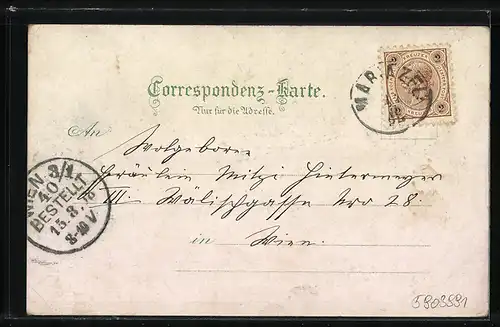 Correspondenz-Karte.
Nur für die Adresse.
MARIAZELL
An
Wolgeboren
Fräulein Mitzi Hintermeyer
III. Wälischgasse Nro 28.
in Wien.
WIEN 3/1
40
BESTELLT
15.8.
8-10V
5903991